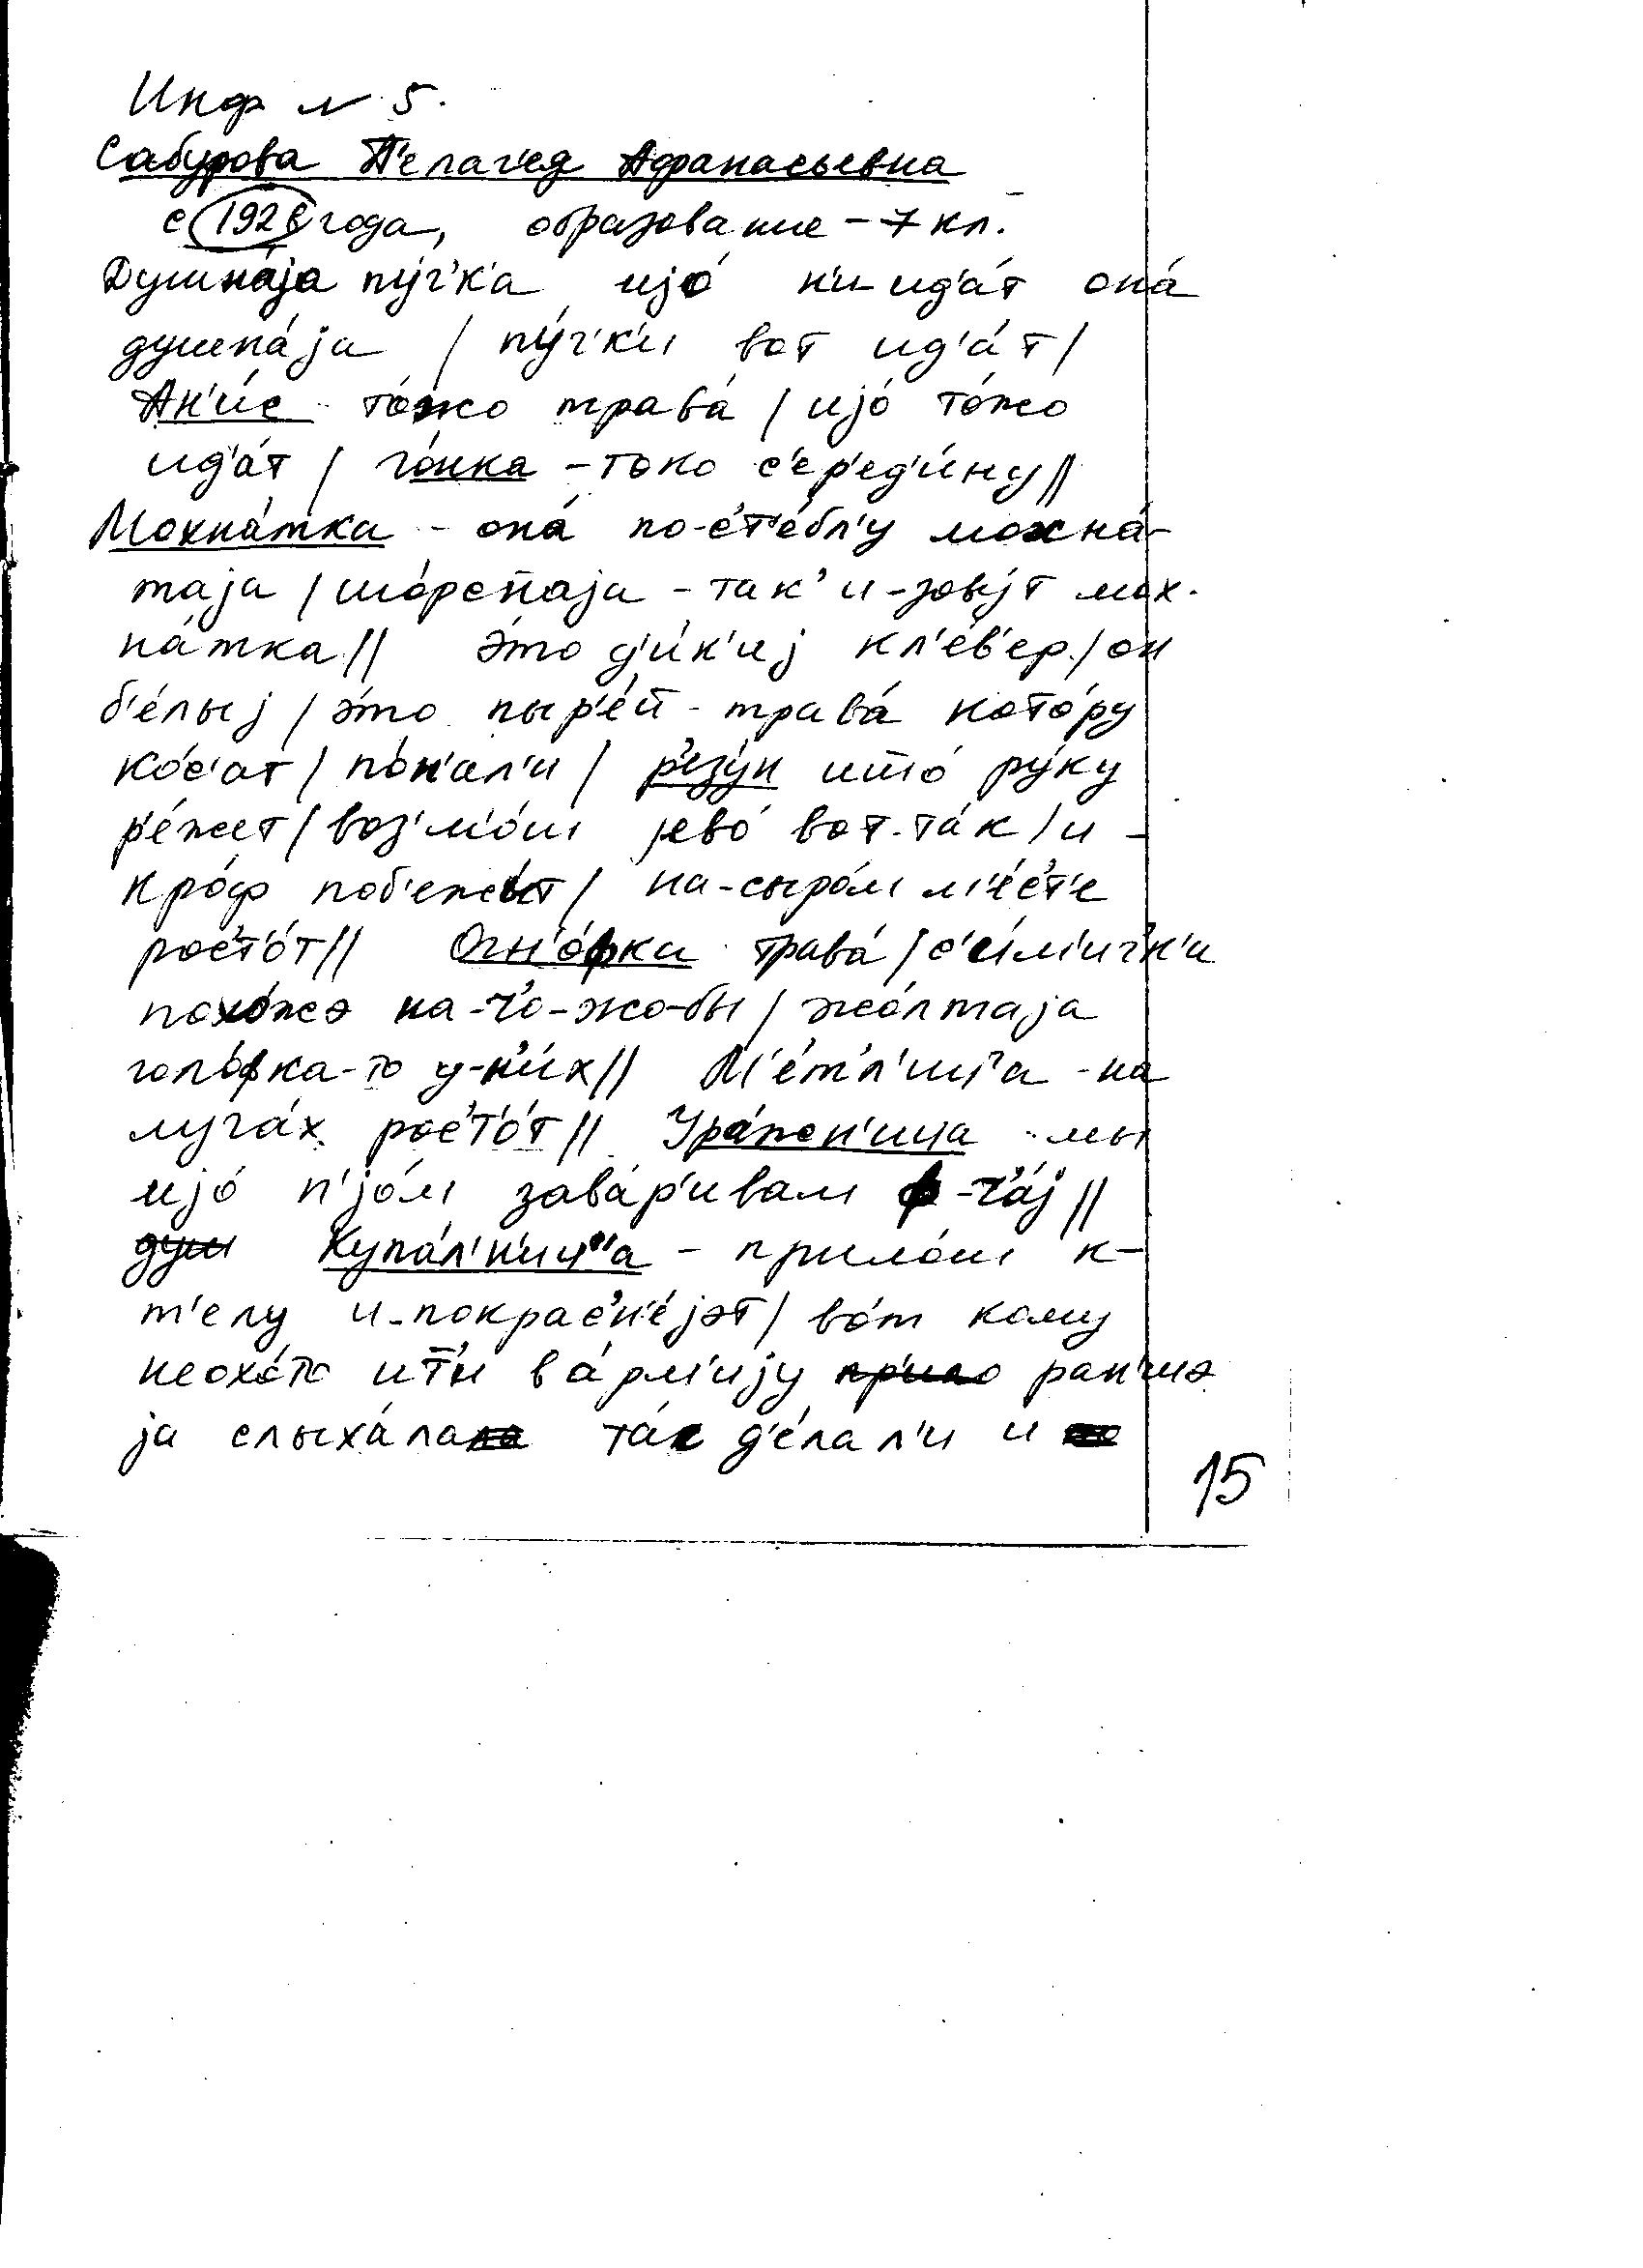 Инф № 5.
Сабурова П'елаг'ея Афанасьевна
с 1928 года, образование – 7 кл.
Душна́jа пу́ч'к'а ијо́ н'и-ид'а́т она́
душна́jа / пу́ч'к'и вот ид'а́т /
Ан'и́с то́жо трава́ / ијо́ то́жо
ид'а́т / го́нка – токо с'ер'ед'и́ну //
Мохна́тка – она́ по-с'т'е́бл'у мохна́-
таjа / шо́рстнаjа – так' и-зову́т мох-
на́тка // э́то д'и́к'иj кл'е́в'ер / он
б'е́лыj / э́то пыр'е́й – трава́ кото́ру
ко́с'ат / по́н'ал'и / р'езу́н што́ ру́ку
р'е́жет / воз'м'о́ш jево́ вот-та́к / и –
кро́ф поб'ежы́т / на-сыро́м м'е́с'т'е
рос'т'о́т // Огн'о́фки трава́ / с'е́м'ич'к'и
похо́жэ на-ч'о-жо-бы / жо́лтаjа
голо́фка-то у-н'и́х // М'е́тл'иц'а – на
луга́х рос'т'о́т // Ура́жн'ица – мы
ијо́ п'jо́м зава́р'ивам ф-ч'а́j //
душ Купа́л'н'иц"а – прило́ш к-
т'елу и-покрас'н'е́jэт / во́т кому
неохо́то ит'и́ в а́рм'иjу прило ран'шэ
jа слыха́лала та́к д'е́лал'и и
15